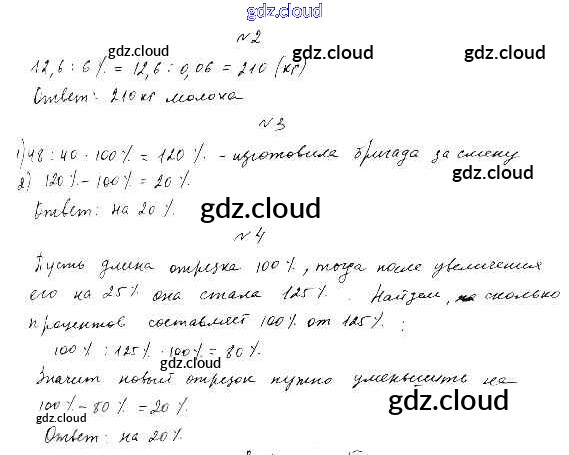 gdz.cloud
№2
gdz.cloud gdz.cloud
12,6 : 6% = 12,6 : 0,06 = 210 (кг)
Ответ: 210 кг молока
gdz.cloud
№3
1) 48 : 40 · 100% = 120% - изготовила бригада за смену
2) 120% - 100% = 20%.
gdz.cloud
Ответ: на 20%.
gdz.cloud
№4
Пусть длина отрезка 100%, тогда после увеличения
его на 25% она стала 125%. Найдем, на сколько
процентов составляет 100% от 125%:
100% : 125% · 100% = 80%.
gdz.cloud
Значит новый отрезок нужно уменьшить на
100% - 80% = 20%.
gdz.cloud
gdz.cloud
Ответ: на 20%.